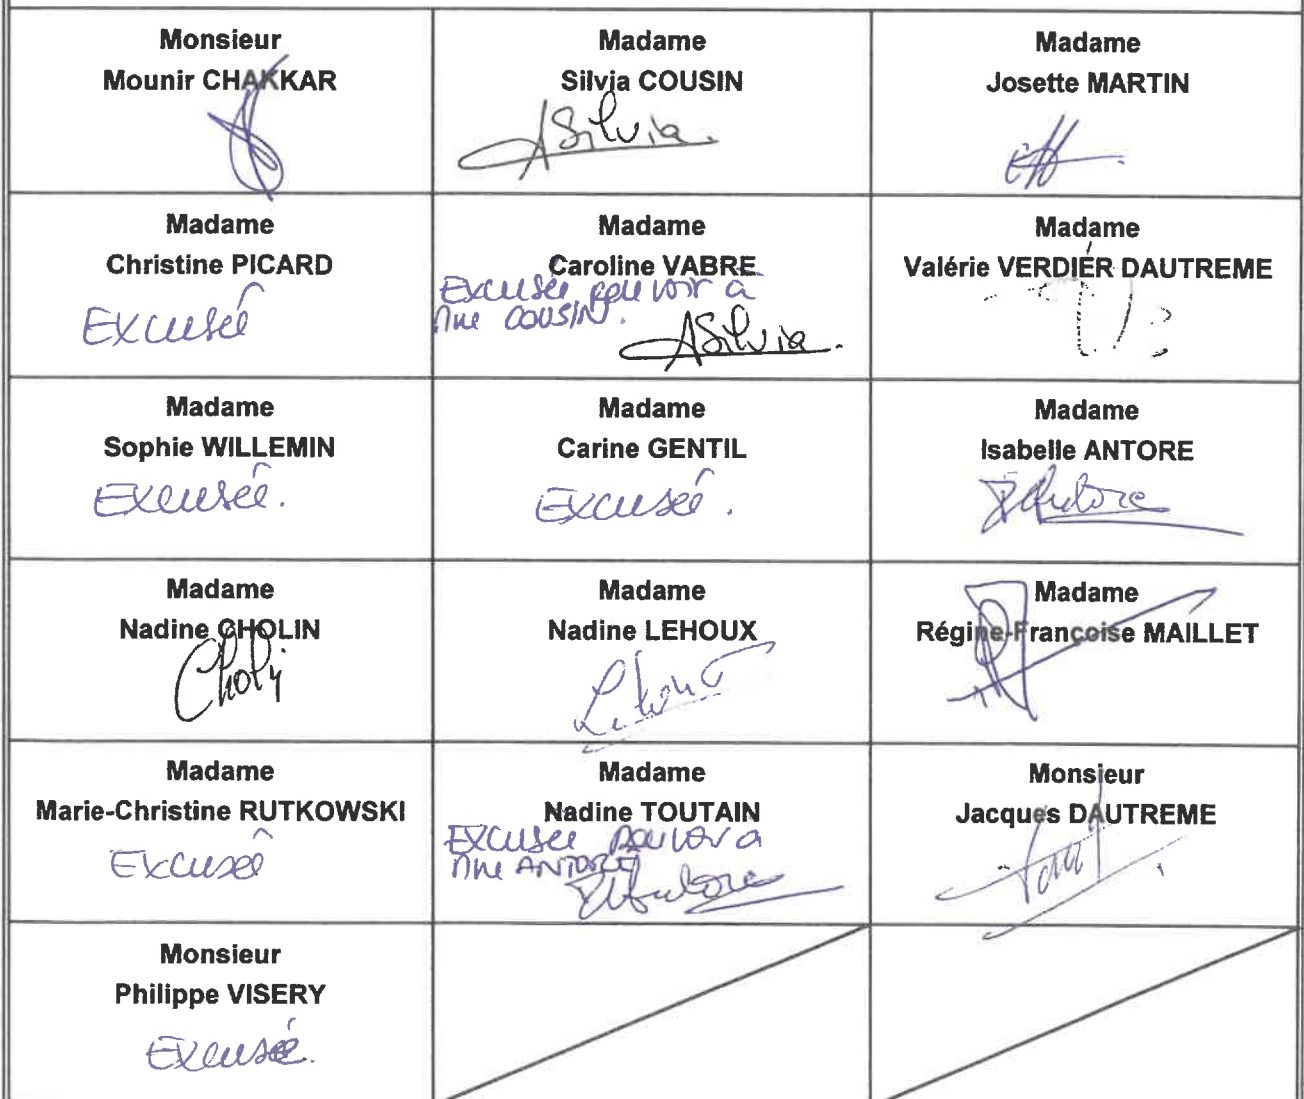 Monsieur
Mounir CHAKKAR
Madame
Silvia COUSIN
Silvia
Madame
Josette MARTIN
Madame
Christine PICARD
Excusée
Madame
Caroline VABRE
Excusée pouvoir à
Mme COUSIN.
Silvia
Madame
Valérie VERDIER DAUTREME
Madame
Sophie WILLEMIN
Excusée.
Madame
Carine GENTIL
Excusée.
Madame
Isabelle ANTORE
Antore
Madame
Nadine CHOLIN
Madame
Nadine LEHOUX
Madame
Régine-Françoise MAILLET
Madame
Marie-Christine RUTKOWSKI
Excusée
Madame
Nadine TOUTAIN
Excusée pouvoir à
Mme ANTORE
Antore
Monsieur
Jacques DAUTREME
Monsieur
Philippe VISERY
Excusé.